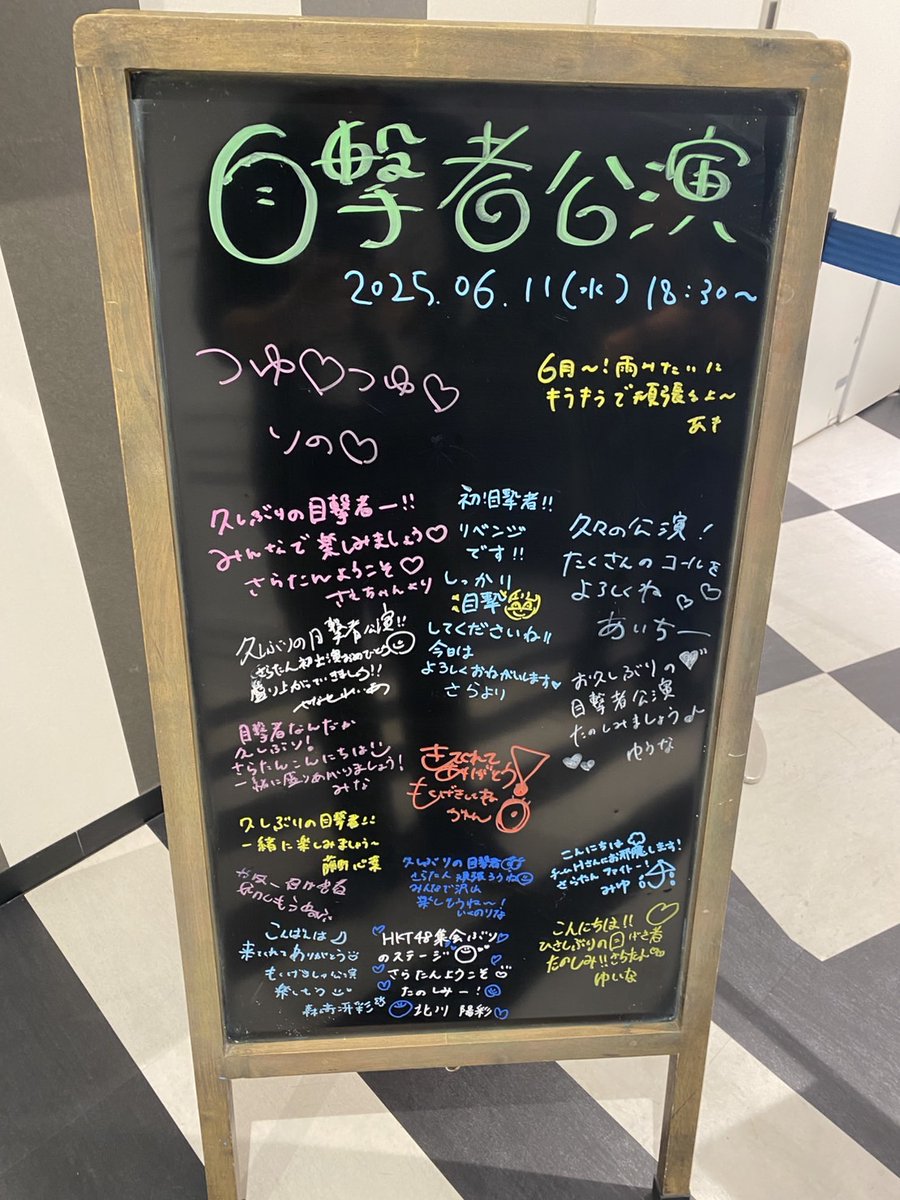 目撃者公演
2025.06.11(水) 18:30〜
つゆ♡つゆ♡
りの♡
6月〜!雨みたいに
キラキラで頑張るよ〜
あき
久しぶりの目撃者ー!!
みんなで楽しみましょう♡
さらたんようこそ♡
さえちゃんより
初!目撃者!!
リベンジ
です!!
しっかり
目撃
してくださいね!!
今日は
よろしくおねがいします♡
さらより
久々の公演!
たくさんのコールを
よろしくね♡♡
あいちー
久しぶりの目撃者公演!!
さらたん初出演おめでとう
盛り上がっていきましょう!!
お久しぶりの
目撃者公演
たのしみましょう♪
ゆりな
目撃者なんだか
久しぶり!
さらたんこんにちは
一緒に盛りあがりましょう!
みな
きてくれて
ありがとう!
もくげきしてね
久しぶりの目撃者!!
一緒に楽しみましょう〜
心菜
久しぶりの目撃者
さらたん頑張ろうね
みんなで沢山
楽しもうね〜!
いくのりな
こんにちは
チームHさんにお邪魔します!
さらたんファイトー!
みゆ
こんばんは
来てくれてありがとう
もくげきしゃ公演
楽しもう
HKT48集会ぶり
のステージ
さらたんようこそ
たのしみー!
北川 陽彩♡
こんにちは!!
ひさしぶりの目げき者
たのしみ!!さらたん
ゆいな